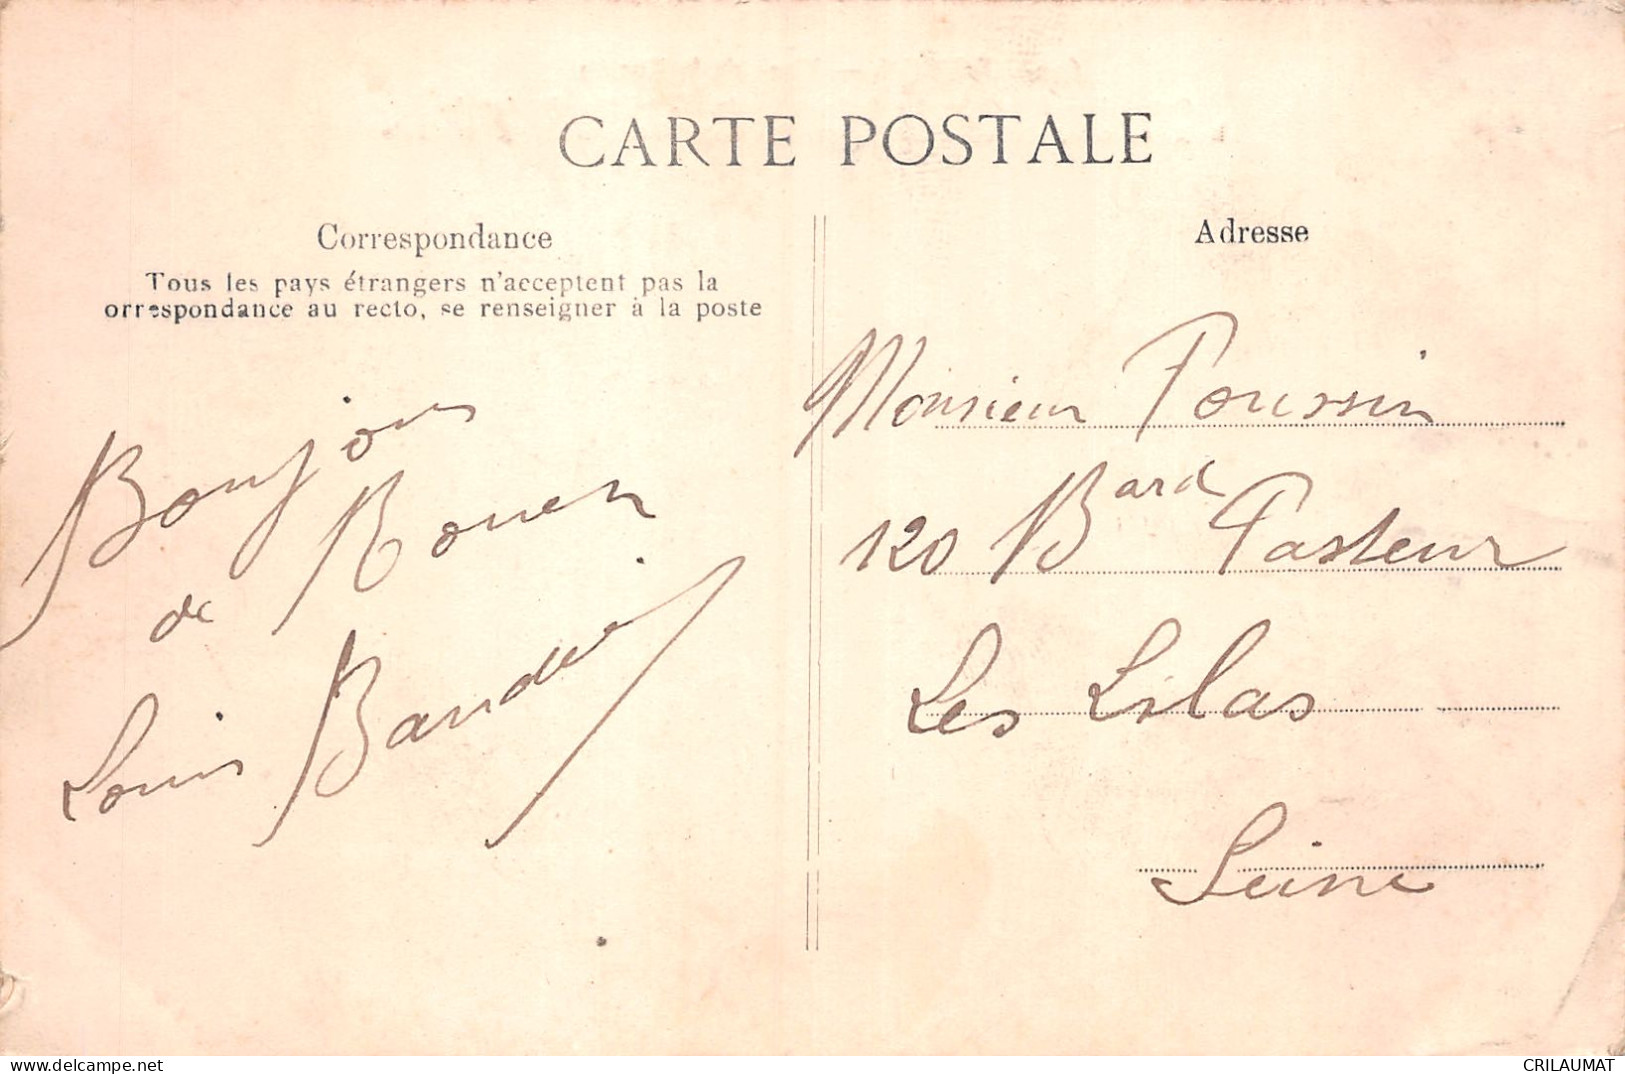 CARTE POSTALE
Correspondance
Tous les pays étrangers n'acceptent pas la
orrespondance au recto, se renseigner à la poste
Bonjour
de Rouen
Louis
Adresse
Monsieur Poussin
120 Bard Pasteur
Les Lilas
Seine
www.delcampe.net
CRILAUMAT